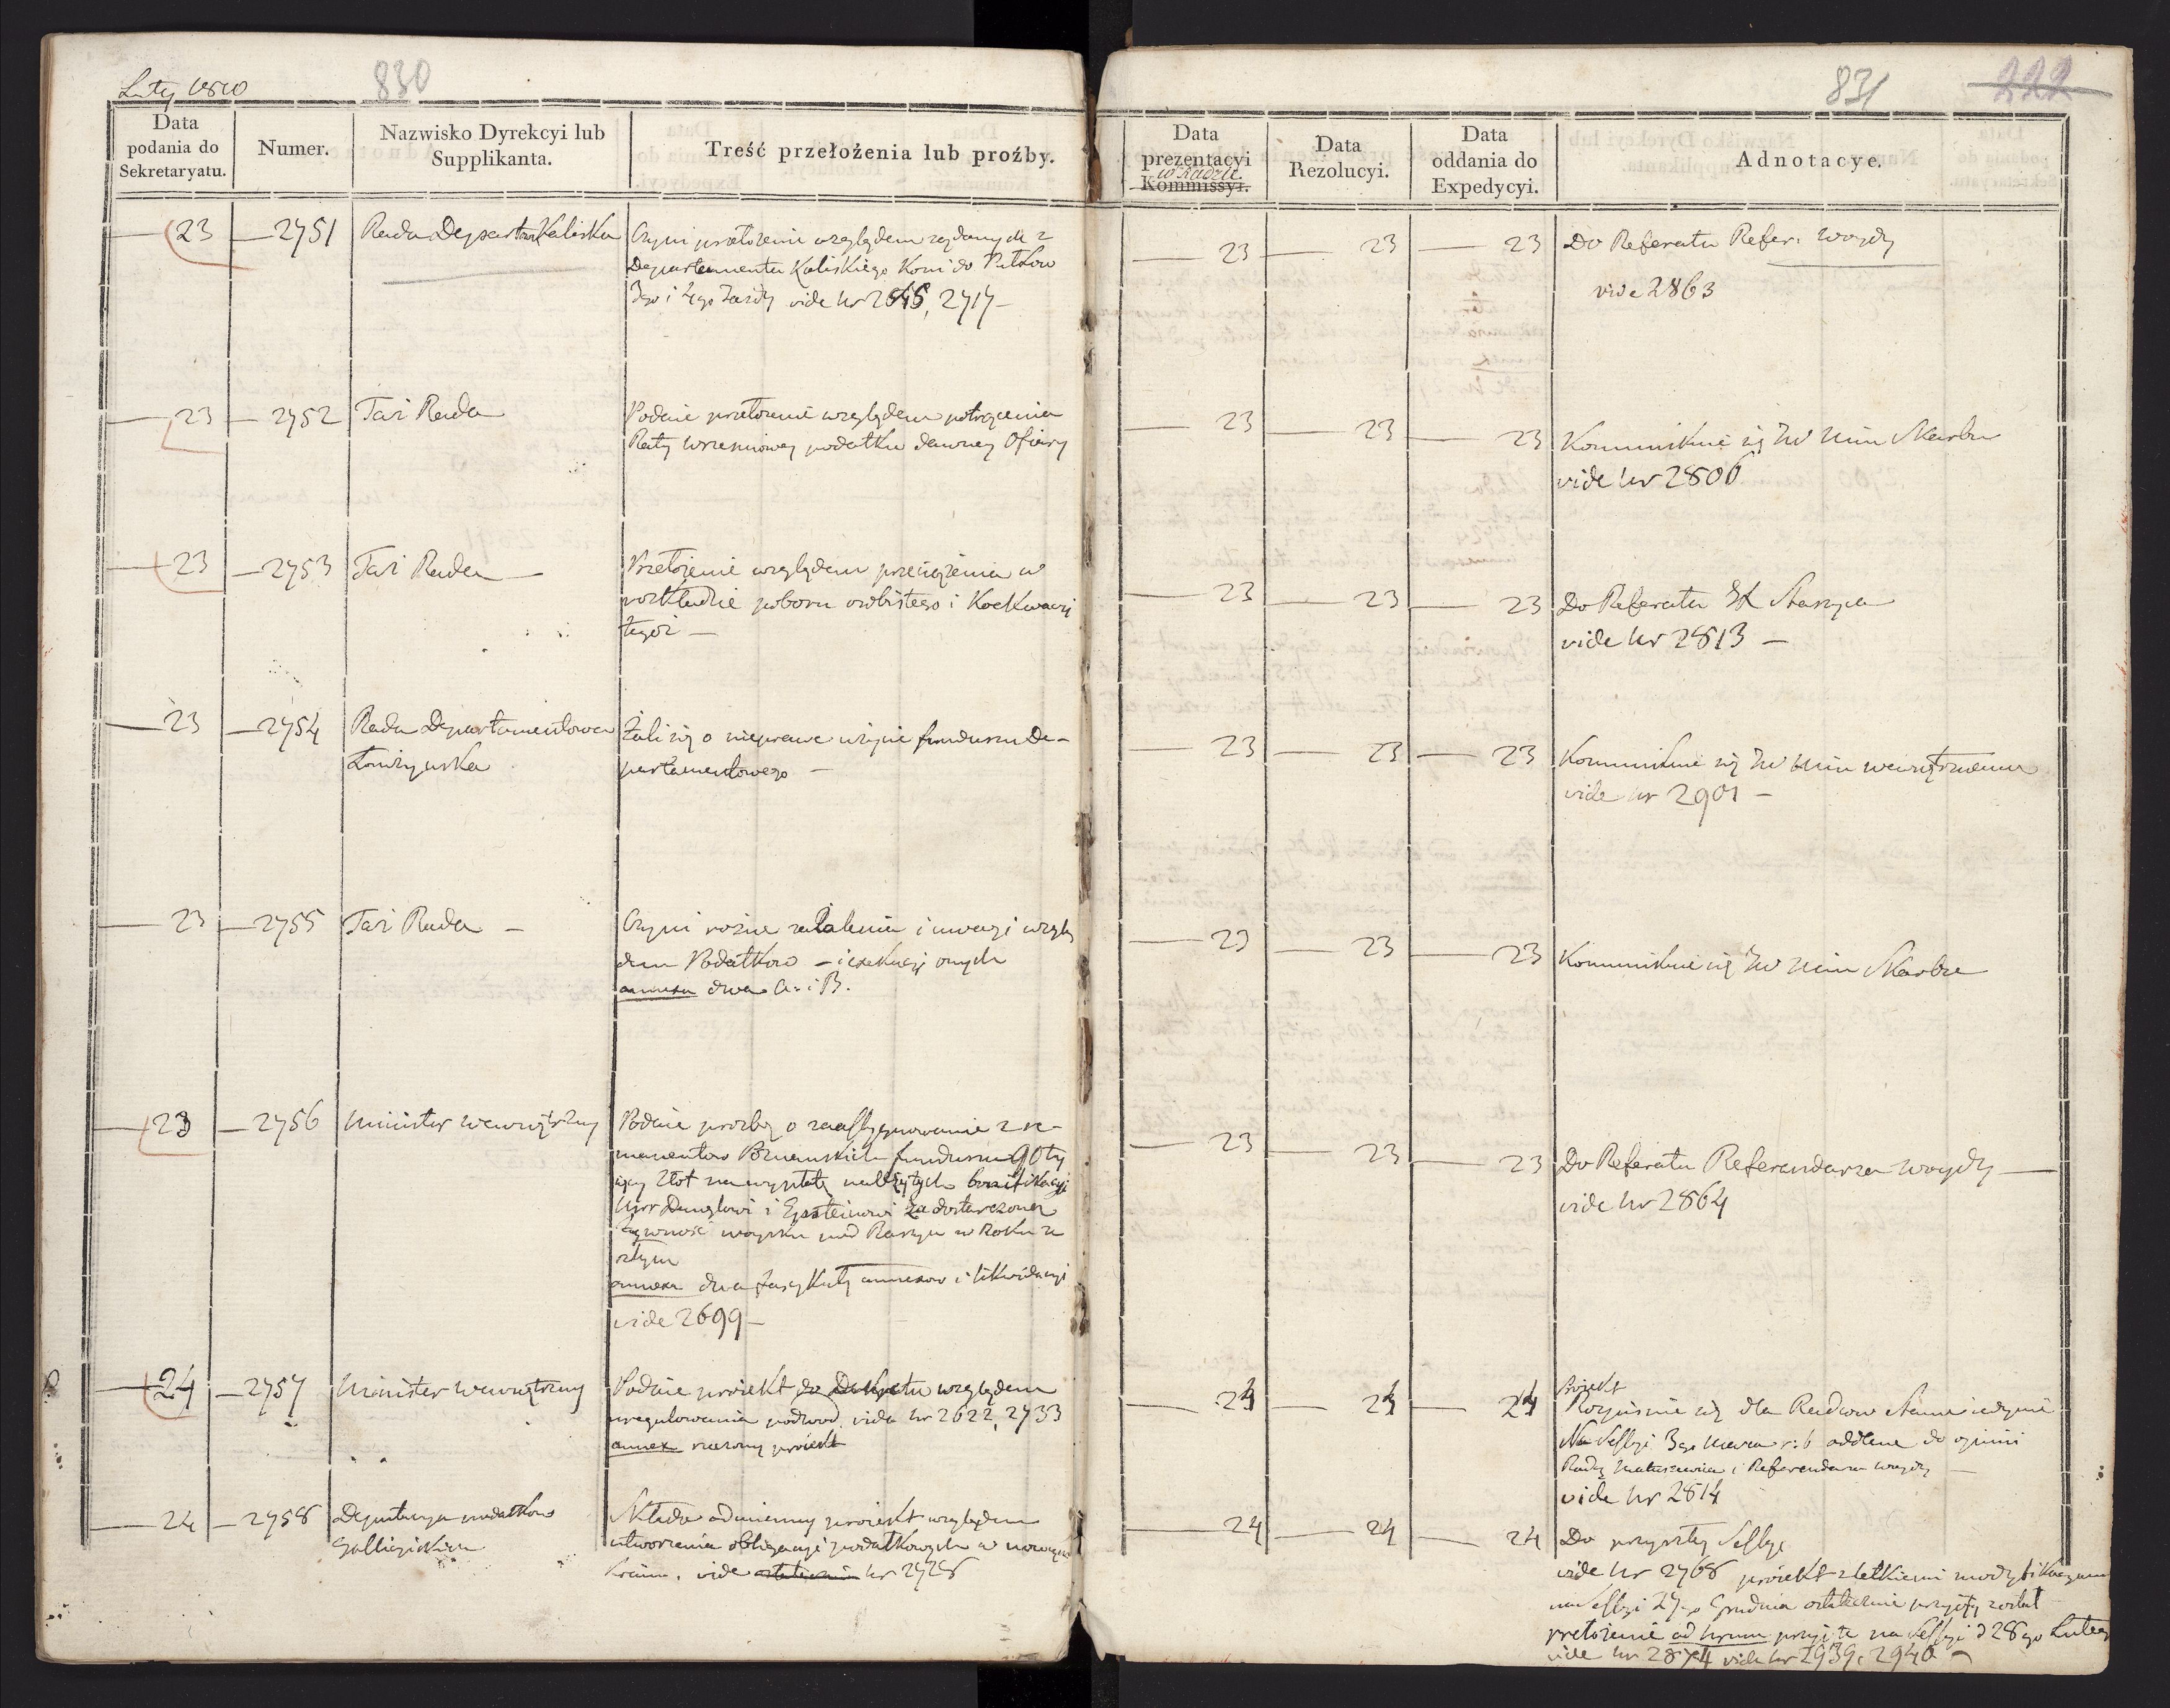 Luty 1810
830
Data podania do Sekretaryatu.
Numer.
Nazwisko Dyrekcyi lub Supplikanta.
Treść przełożenia lub proźby.
23 2751 Rada Departtow Kaliska
Czyni przełożenie względem żądanych z
Departamentu Kaliskiego Koni do Pułkow
3go i 4go Jazdy vide nr 2645, 2717
23 2752 Taż Rada
Podaie przełożenie względem potrącenia
Raty wrześniowey podatku dawney Ofiary
23 2753 Taż Rada
Przełożenie względem przeciążenia w
rozkładzie poboru osobistego i Koekwacyi
tegoż
23 2754 Rada Departamentowa
Łomżyńska
Żali się o nieprawe użycie funduszu De-
partamentowego
23 2755 Taż Rada
Czyni rożne zażalenia i uwagi wzglę
dem Podatkow i exekucyi onych
annexa dwa A. i B.
23 2756 Minister wewnętrzny
Podaie prozbę o zaassygnowanie z re-
manentow Poznanskich funduszu 90 ty
ięcy Złot na wypłatę należytych bonifikacyi
i Epsteinowi za dostarczoną
żywność woysku pod Raszyn w Roku ze
szłym
annexa dwa fascykuły annexow i likwidacyi
vide 2699
24 2757 Minister wewnętrzny
Podaie proiekt do Dekretu względem
uregulowania podwod. vide nr 2622, 2733
annex rzeczony proiekt
24 2758 Deputacya podatkow
Gallicyiskich
Składa odmienny proiekt względem
utworzenia obligacyi podatkowych w nowym
Kraiu. vide nr 2728
831
222
Data prezentacyi w Radzie Kommissyi.
Data Rezolucyi.
Data oddania do Expedycyi.
Adnotacye.
23 23 23 Do Referatu Refer. Woydy
vide 2863
23 23 23 Kommunikuie się JW Min Skarbu
vide nr 2806
23 23 23 Do Referatu Staszyca
vide nr 2813
23 23 23 Kommunikuie się JW Min wewnętrznemu
vide nr 2901
23 23 23 Kommunikuie się JW Min Skarbu
23 23 23 Do Referatu Referendarza Woydy
vide nr 2864
24 24 24 Proiekt
Rozpisuie się dla Radcow Stanu
Na Sessyi 3go Marca r: b oddane do opinii
Radcy Matuszewica i Referendarza Woydy
vide nr 2814
24 24 24 Do przyszłey Sessyi
vide nr 2768 proiekt z letkiemi modyfikacyami
na Sessyi 27go Grudnia ostatecznie przyięty został
przełożenie ad hrum przyięte na Sessyi d 28go Lutego
vide nr 2874 vide nr 2939, 2940